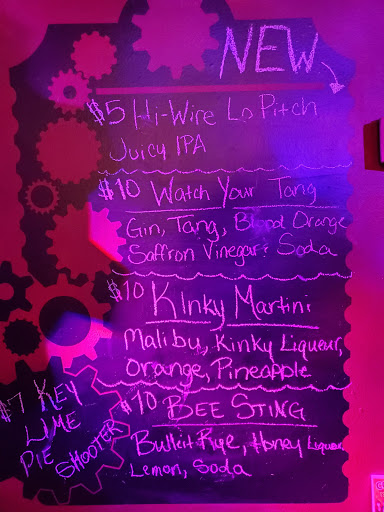 NEW
$5 Hi-Wire Lo Pitch
Juicy IPA
$10 Watch Your Tang
Gin, Tang, Blood Orange
Saffron Vinegar & Soda
$10
Kinky Martini
Malibu, Kinky Liqueur,
Orange, Pineapple
$10 BEE STING
Bulleit Rye, Honey Liqueur
Lemon, Soda
$7 KEY
LIME
PIE
SHOOTER